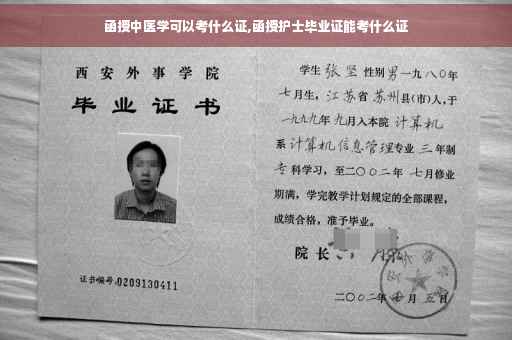 函授中医学可以考什么证,函授护士毕业证能考什么证
西安外事学院
毕业证书
证书编号:0209130411
学生张坚性别男一九八〇年
七月生,江苏省苏州县(市)人,于
一九九九年九月入本院计算机
系计算机信息管理专业三年制
专科学习,至二〇〇二年七月修业
期满,学完教学计划规定的全部课程,
成绩合格,准予毕业。
院长
二〇〇二年七月五日